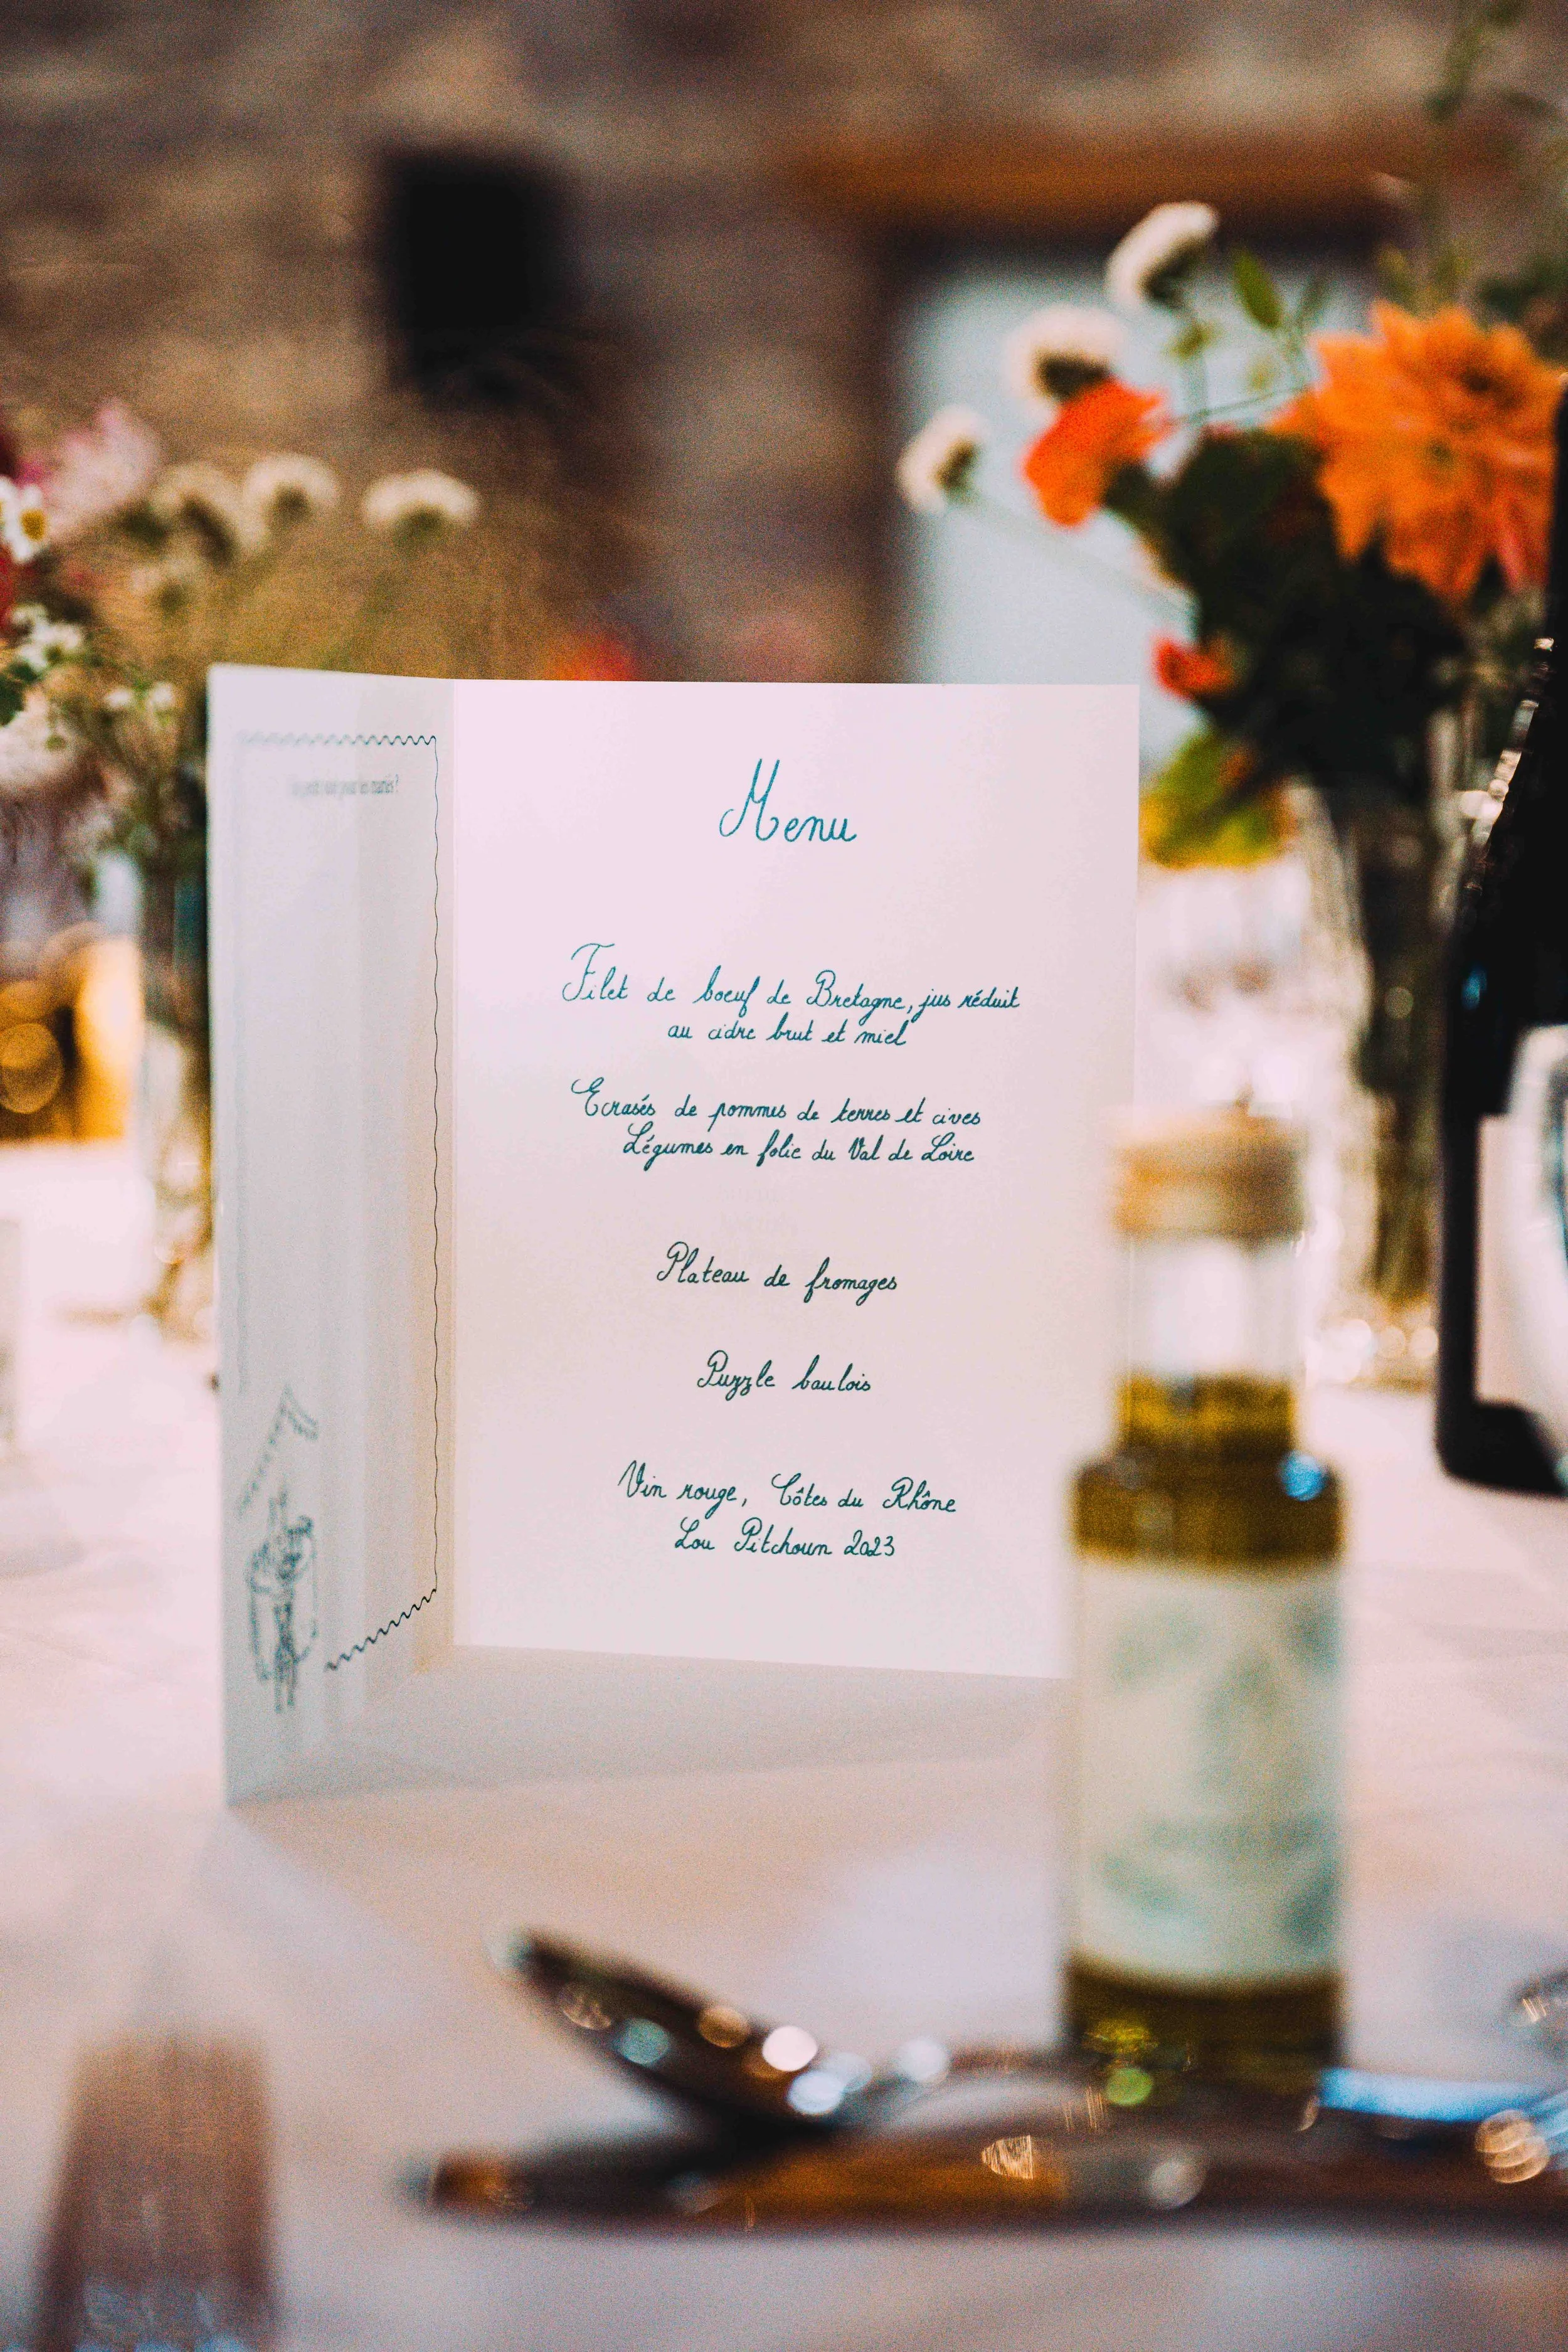 Menu
Filet de boeuf de Bretagne, jus réduit
au cidre brut et miel
Ecrasés de pommes de terres et cives
Légumes en folie du Val de Loire
Plateau de fromages
Puzzle baulois
Vin rouge, Côtes du Rhône
Lou Pitchoun 2023